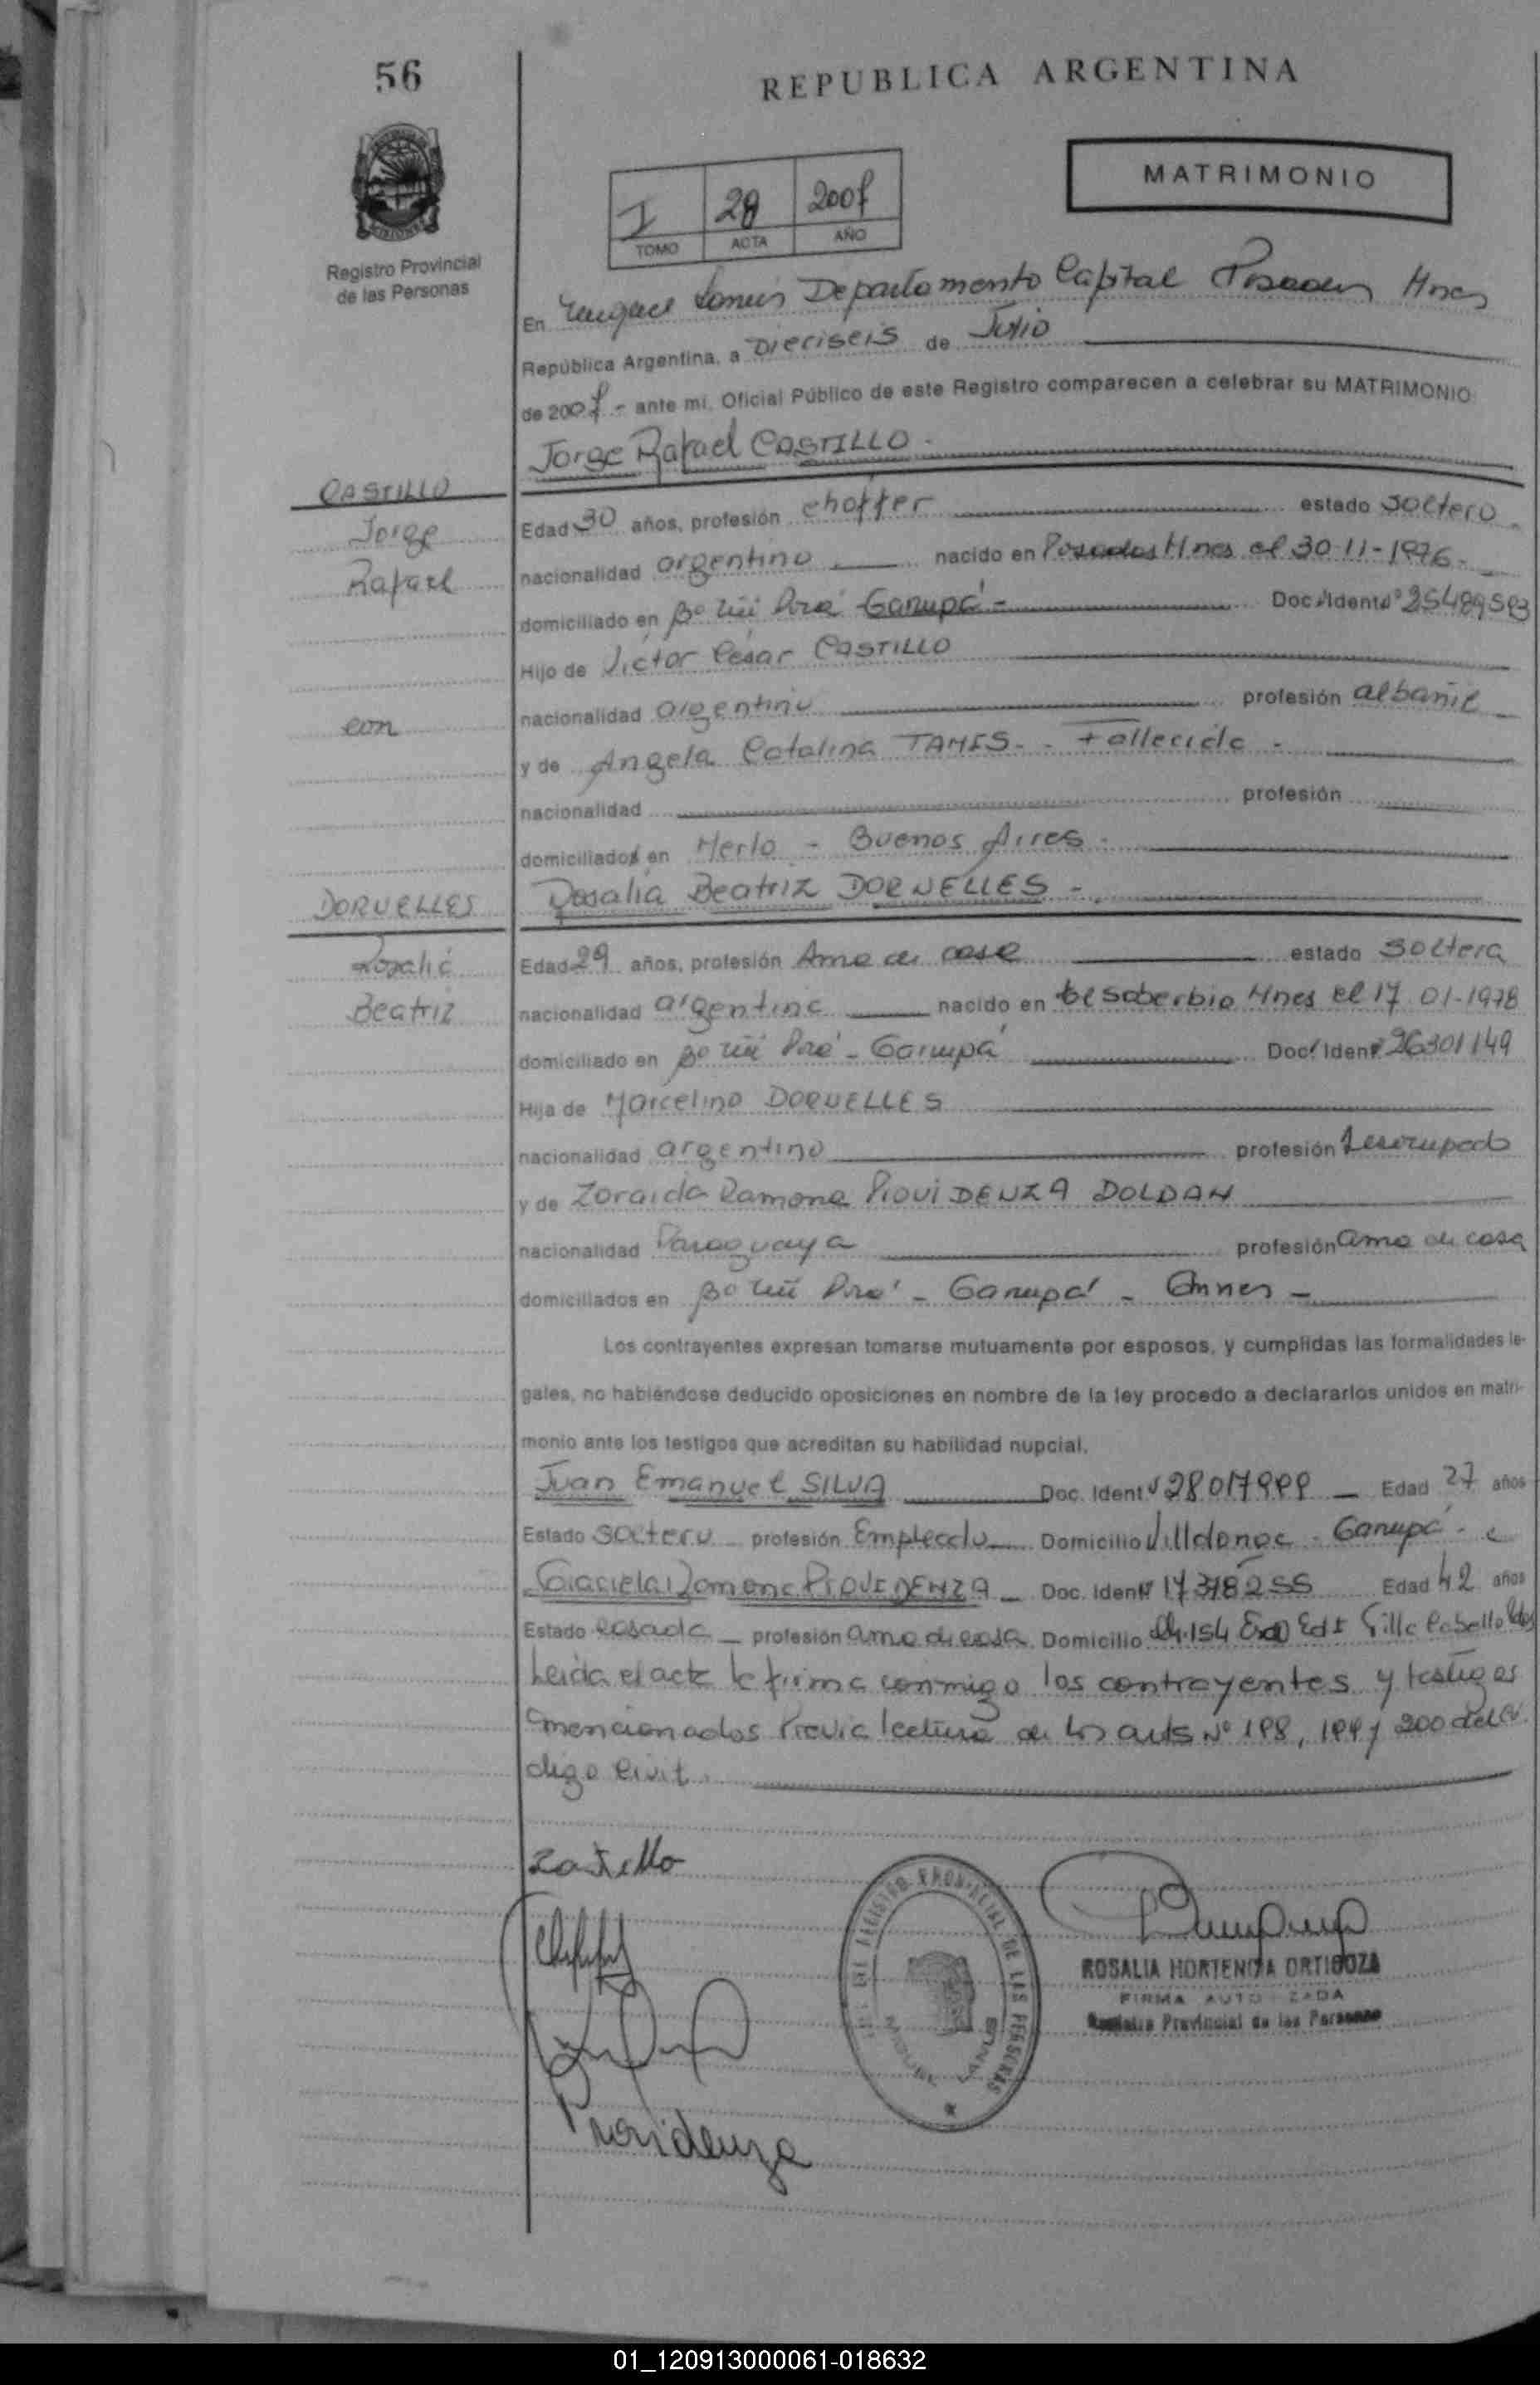 56
REPUBLICA ARGENTINA
MATRIMONIO
Registro Provincial
de las Personas
I 28 2007
TOMO ACTA AÑO
En Miguel Lanús Departamento Capital Posadas Mnes
República Argentina, a Dieciseis de Julio
de 2007 - ante mí, Oficial Público de este Registro comparecen a celebrar su MATRIMONIO
Jorge Rafael CASTILLO -
CASTILLO
Jorge
Rafael
con
Edad 30 años, profesión choffer estado soltero
nacionalidad argentino nacido en Posadas Mnes el 30-11-1976-
domiciliado en Bº Ñu Porá Garupá - Doc. Ident. Nº
Hijo de Victor César CASTILLO
nacionalidad argentino profesión albañil
y de Angela Catalina TAMIS - Fallecida -
nacionalidad profesión
domiciliados en Merlo - Buenos Aires -
Rosalia Beatriz DORNELLES -
DORNELLES
Rosalia
Beatriz
Edad 29 años, profesión Ama de casa estado soltera
nacionalidad argentina nacido en El Soberbio Mnes el 17-01-1978
domiciliado en Bº Ñu Porá - Garupá Doc. Ident. 26301149
Hija de Marcelino DORNELLES
nacionalidad argentino profesión desocupado
y de Zoraida Ramona PIOVIDENZA DOLDAN
nacionalidad Paraguaya profesión ama de casa
domiciliados en Bº Ñu Porá - Garupá -
Los contrayentes expresan tomarse mutuamente por esposos, y cumplidas las formalidades le-
gales, no habiéndose deducido oposiciones en nombre de la ley procedo a declararlos unidos en matri-
monio ante los testigos que acreditan su habilidad nupcial.
Juan Emanuel SILVA Doc. Ident. 28017999 - Edad 27 años
Estado soltero - profesión Empleado Domicilio Villalonga - Garupá - e
Graciela Ramona PIOVIDENZA - Doc. Ident. Nº Edad 42 años
Estado casada - profesión ama de casa Domicilio Ch. 154
Leida el acta la firma conmigo los contrayentes y testigos
mencionados Previa lectura de los arts Nº 198, 199 y 200 del Có-
digo Civil.
Castillo
Providenza
REGISTRO PROVINCIAL DE LAS PERSONAS
MIGUEL LANUS
ROSALIA HORTENCIA ORTIGOZA
FIRMA AUTORIZADA
Registro Provincial de las Personas
01_120913000061-018632